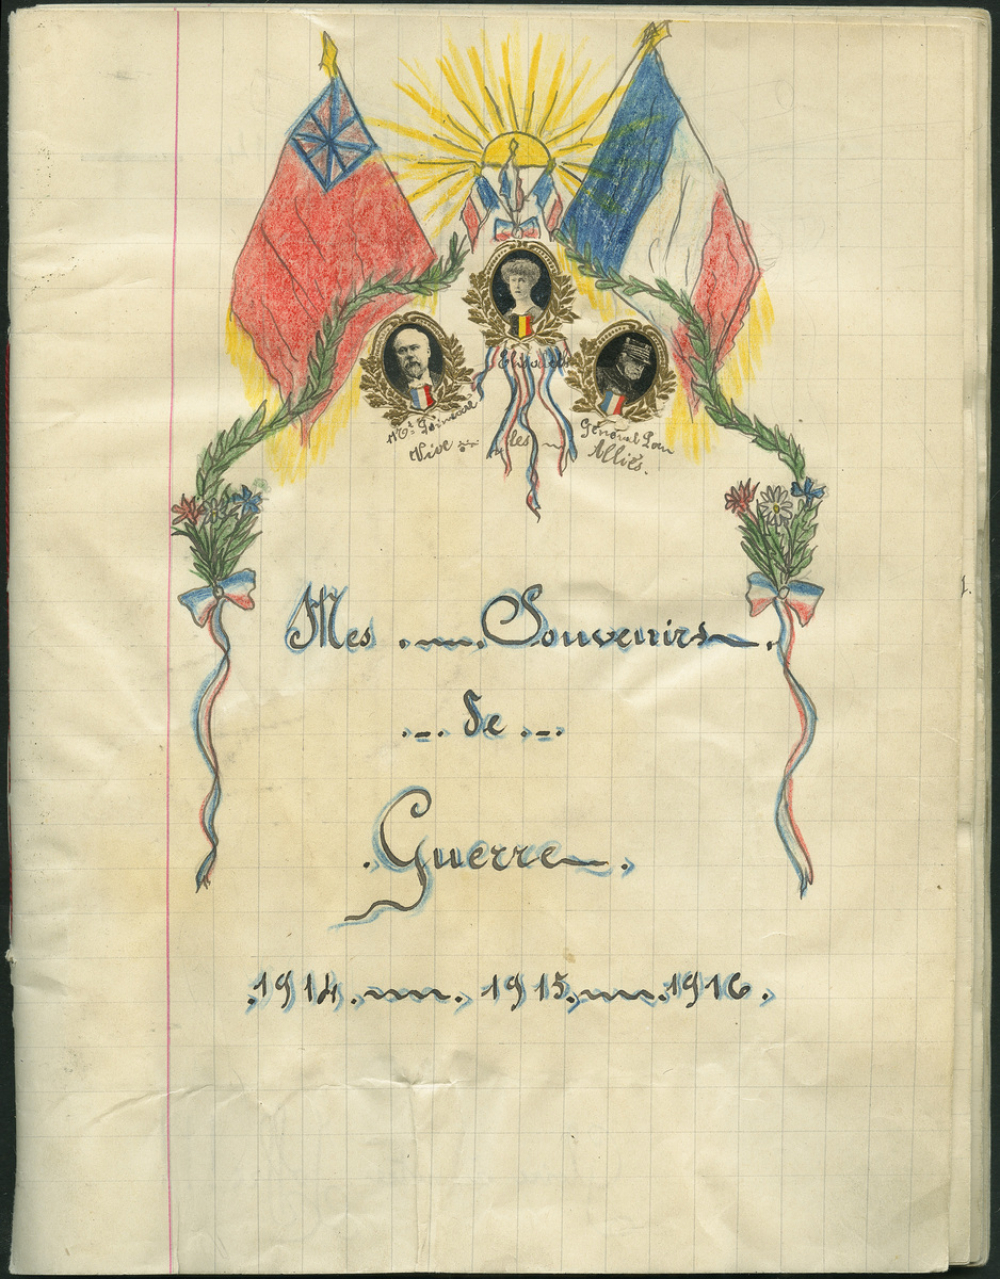 Elisabeth
Mr Poincaré
Général Pau
Vive les Alliés.
Mes Souvenirs.
de
Guerre.
1914. 1915. 1916.